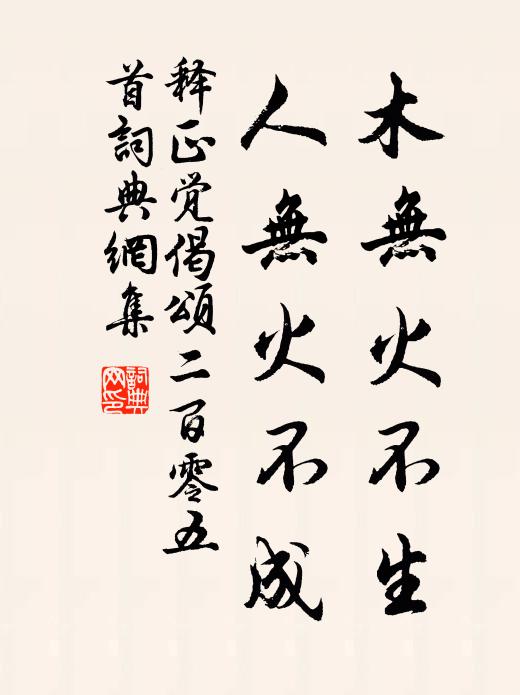 木無火不生
人無火不成
释正覺偈頌二百零五
首詞典網集
詞典
网印